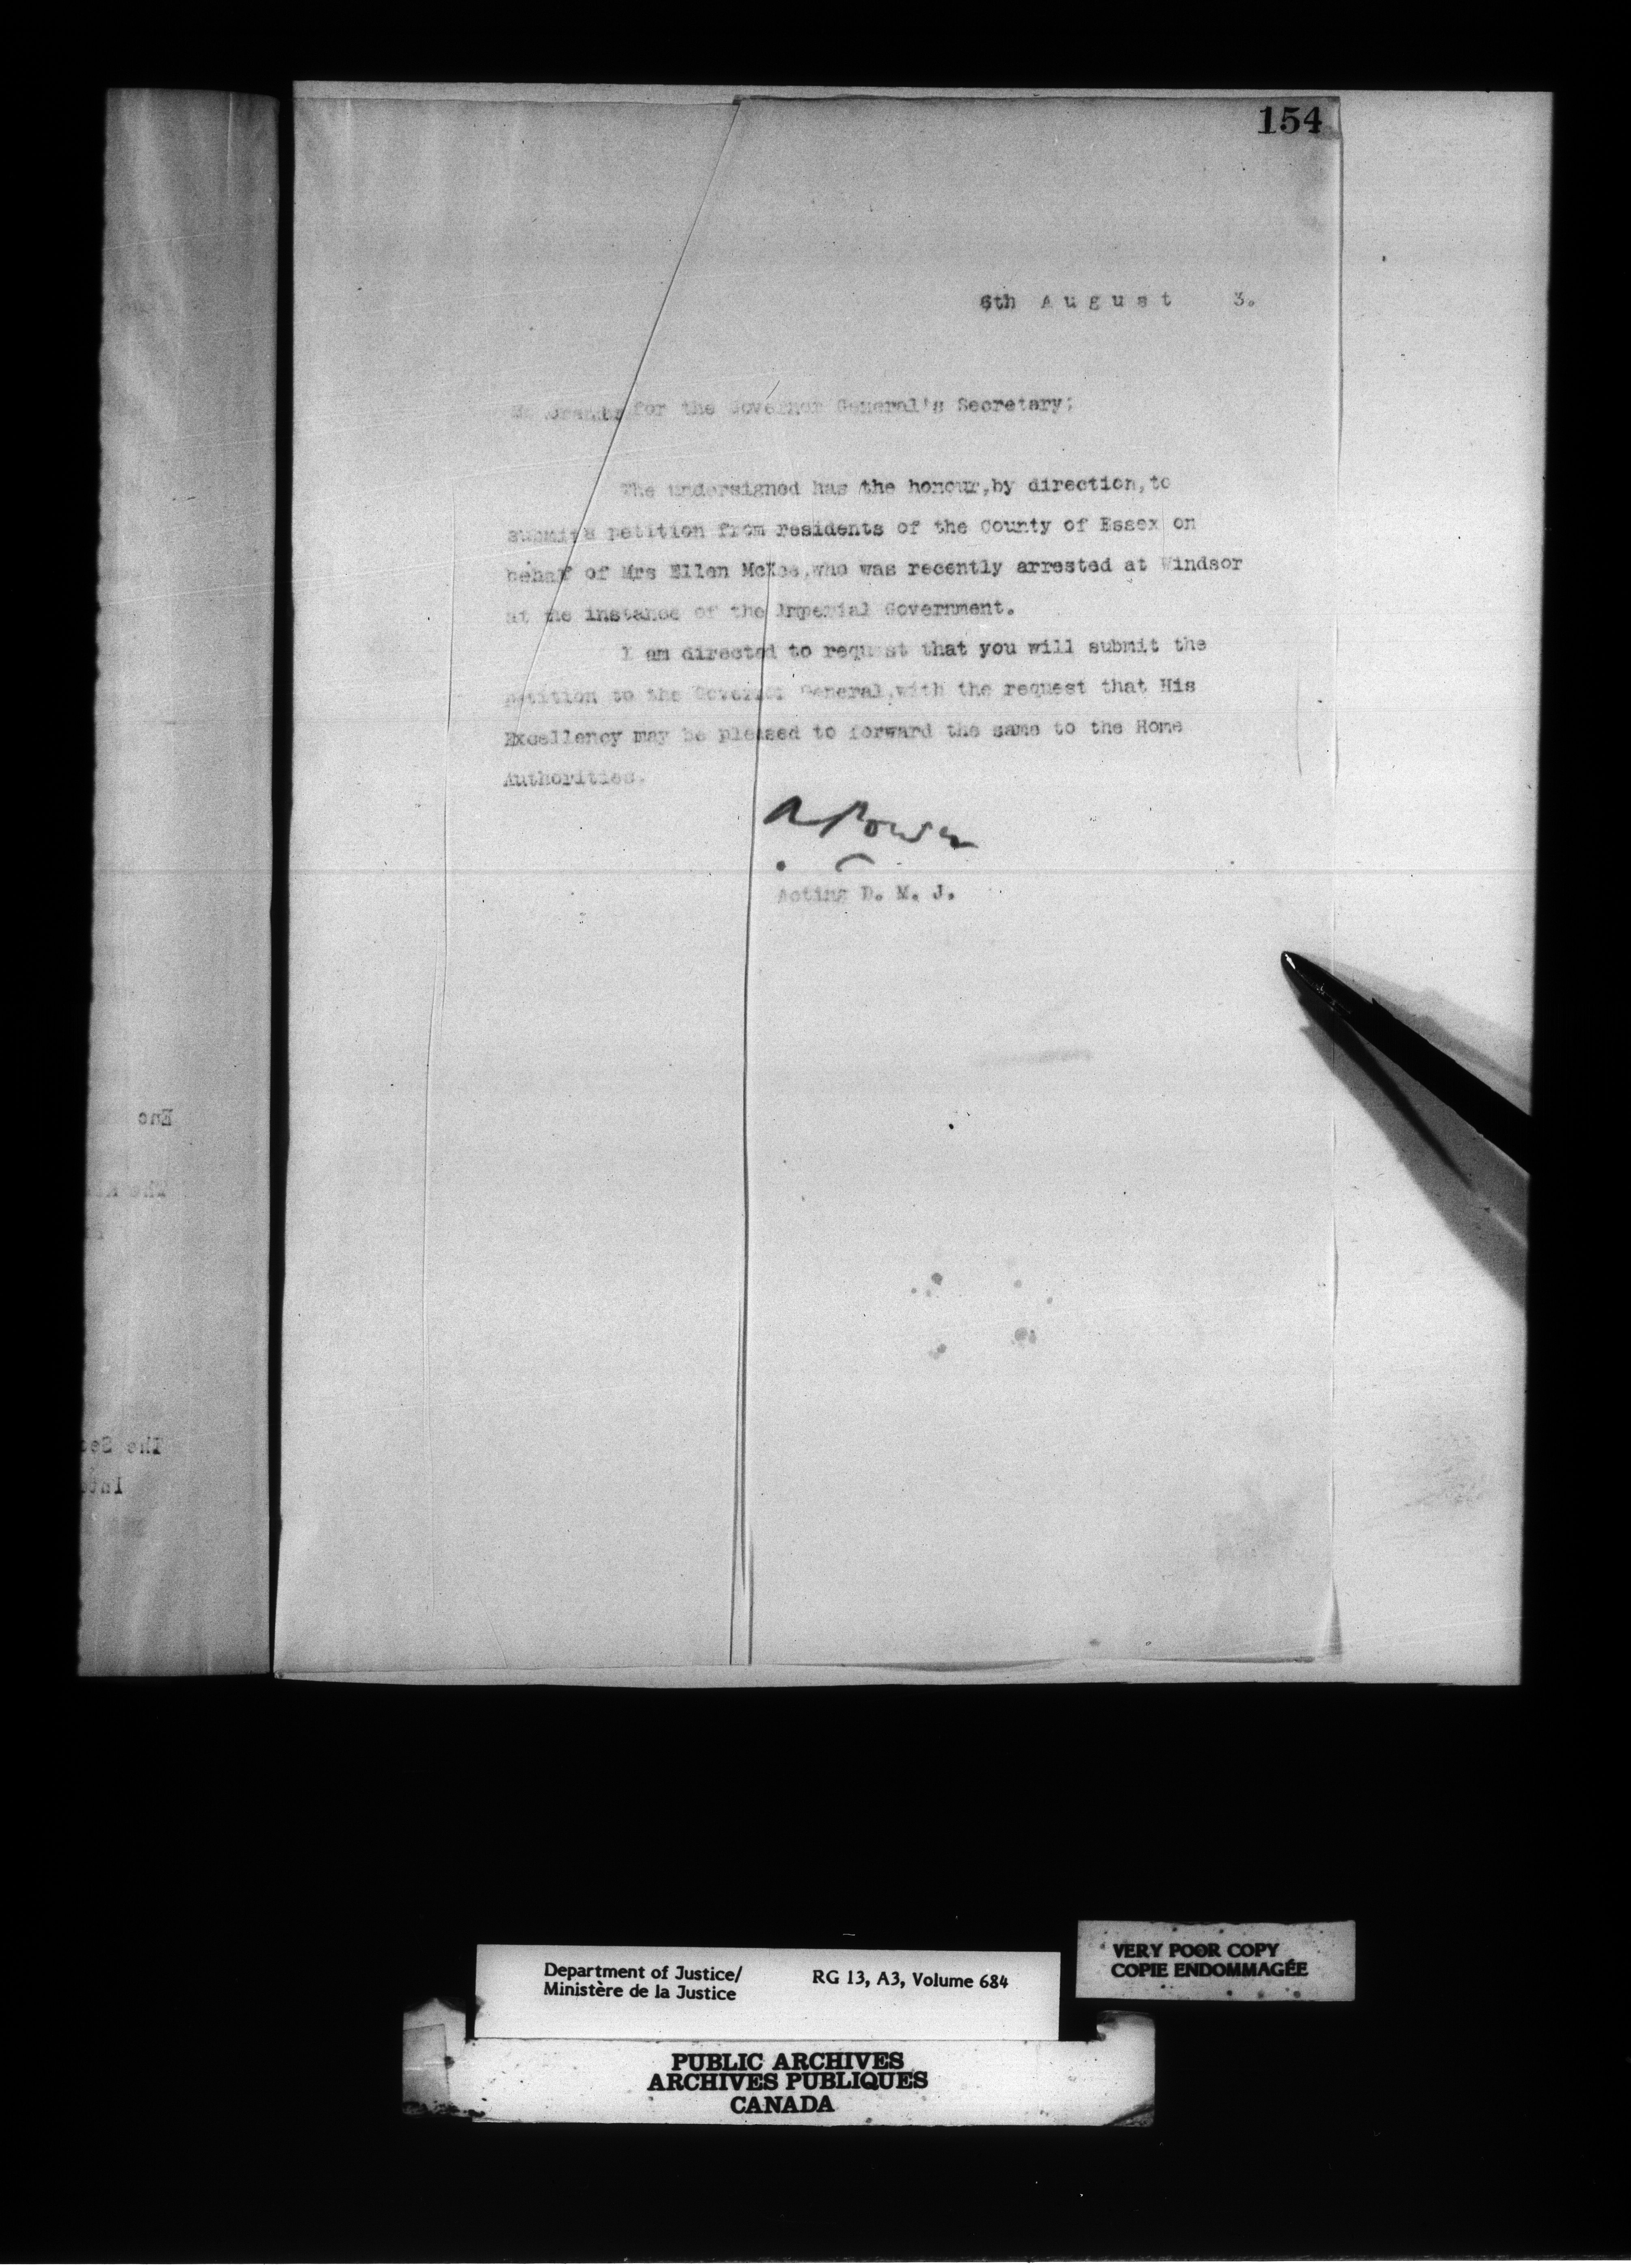 154
6th August 3.
Memorandum for the Governor General's Secretary;
The undersigned has the honour,by direction,to
submit a petition from residents of the County of Essex on
behalf of Mrs Ellen McKee,who was recently arrested at Windsor
at the instance of the Imperial Government.
I am directed to request that you will submit the
petition to the Governor General,with the request that His
Excellency may be pleased to forward the same to the Home
Authorities.
A Power
Acting D. M. J.
Enc
The
The Sec
Inte
Department of Justice/
Ministère de la Justice
RG 13, A3, Volume 684
VERY POOR COPY
COPIE ENDOMMAGÉE
PUBLIC ARCHIVES
ARCHIVES PUBLIQUES
CANADA